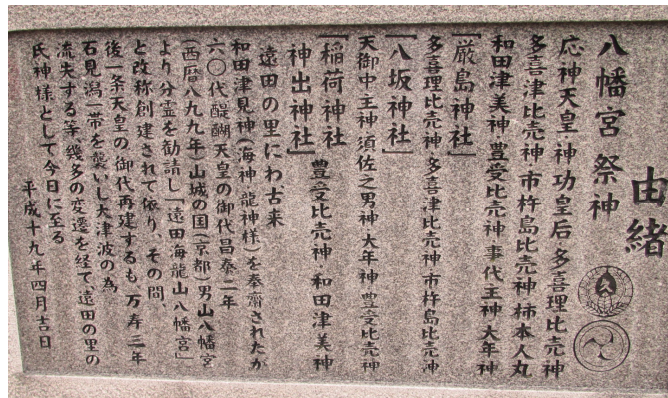 由緒
八幡宮 祭神
応神天皇・神功皇后・多喜理比売神
多喜津比売神・市杵島比売神・柿本人丸
和田津美神・豊受比売神・事代主神・大年神
「厳島神社」
多喜理比売神・多喜津比売神・市杵島比売神
「八坂神社」
天御中主神 須佐之男神・大年神・豊受比売神
「稲荷神社 豊受比売神・和田津美神
神出神社」
遠田の里にわ、古来
和田津見神(海神・龍神様)を奉齋されたが
六〇代醍醐天皇の御代昌泰二年
(西暦八九九年)山城の国(京都)男山八幡宮
より分霊を勧請し「遠田海龍山八幡宮」
と改称創建されて依り、その間、
後一条天皇の御代再建するも、万寿三年
石見潟一帯を襲いし大津波の為
流失する等、幾多の変遷を経て、遠田の里の
氏神様として今日に至る
平成十九年四月吉日